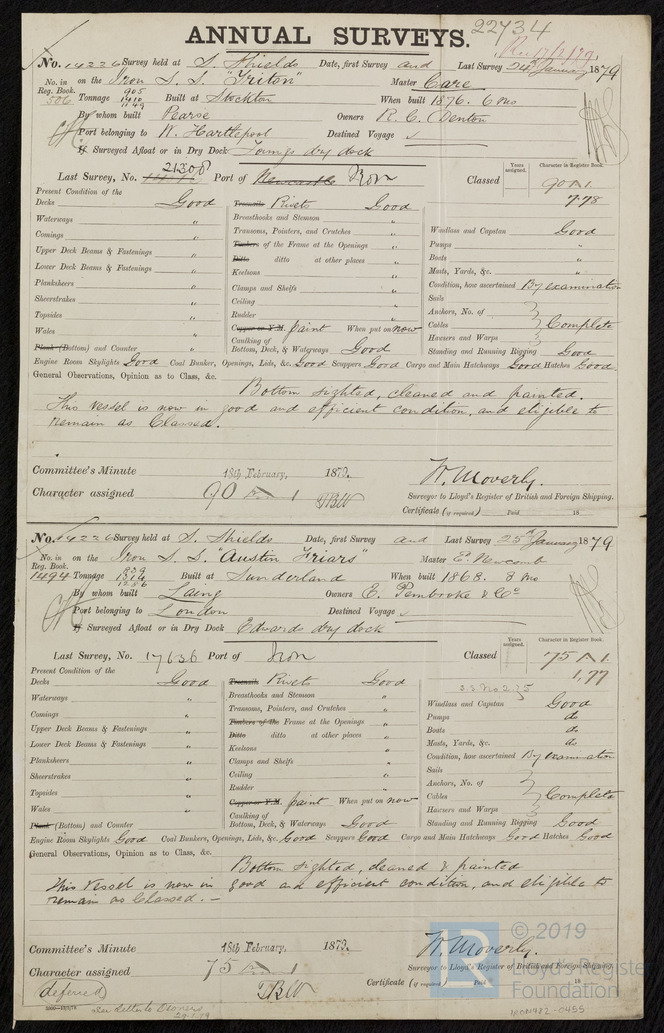 22734
ANNUAL SURVEYS.
Rec 17/2/79
No. 14226 Survey held at S. Shields Date, first Survey and Last Survey 24th January 1879
No. in Reg. Book. 506 on the Iron S.S. "Triton" Master Care
Tonnage 905 1410 1149 Built at Stockton When built 1876. 6 mo
By whom built Pearse Owners R. C. Denton
Port belonging to W. Hartlepool Destined Voyage
If Surveyed Afloat or in Dry Dock Youngs dry dock
Last Survey, No. 21308 Port of Newcastle Iron Classed
Years assigned. Character in Register Book.
90 A1.
7.78
Present Condition of the
Decks Good Treenails Rivets Good
Waterways " Breasthooks and Stemson "
Comings " Transoms, Pointers, and Crutches " Windlass and Capstan Good
Upper Deck Beams & Fastenings " Timbers of the Frame at the Openings " Pumps "
Lower Deck Beams & Fastenings " Ditto ditto at other places " Boats "
Planksheers " Keelsons " Masts, Yards, &c. "
Sheerstrakes " Clamps and Shelfs " Condition, how ascertained By examination
Topsides " Ceiling " Sails
Wales " Rudder " Anchors, No. of
Plank (Bottom) and Counter " Copper or Y.M. paint When put on now Cables Complete
Caulking of Bottom, Deck, & Waterways Good Hawsers and Warps
Standing and Running Rigging Good
Engine Room Skylights Good Coal Bunker, Openings, Lids, &c. Good Scuppers Good Cargo and Main Hatchways Good Hatches Good
General Observations, Opinion as to Class, &c.
Bottom sighted, cleaned and painted.
This Vessel is now in good and efficient condition, and eligible to
remain as Classed.
Committee's Minute 18th February, 1879.
Character assigned 90 A 1
W. Moverly.
Surveyor to Lloyd's Register of British and Foreign Shipping.
Certificate (if required) Paid 18
No. 14226 Survey held at S. Shields Date, first Survey and Last Survey 25th January 1879
No. in Reg. Book. 1494 on the Iron S.S. "Austin Friars" Master E. Newcomb
Tonnage 839 1314 1256 Built at Sunderland When built 1868. 3 mo
By whom built Laing Owners E. Pembroke & Co
Port belonging to London Destined Voyage
If Surveyed Afloat or in Dry Dock Edwards dry dock
Last Survey, No. 17636 Port of Iron Classed
Years assigned. Character in Register Book.
75 A1.
1.77
Present Condition of the
Decks Good Treenails Rivets Good
Waterways " Breasthooks and Stemson " Windlass and Capstan Good
Comings " Transoms, Pointers, and Crutches " Pumps do
Upper Deck Beams & Fastenings " Timbers of the Frame at the Openings " Boats do
Lower Deck Beams & Fastenings " Ditto ditto at other places " Masts, Yards, &c. do
Planksheers " Keelsons " Condition, how ascertained By examination
Sheerstrakes " Clamps and Shelfs " Sails
Topsides " Ceiling " Anchors, No. of
Wales " Rudder " Cables Complete
Plank (Bottom) and Counter Copper or Y.M. paint When put on now Hawsers and Warps
Caulking of Bottom, Deck, & Waterways Good Standing and Running Rigging Good
Engine Room Skylights Good Coal Bunker, Openings, Lids, &c. Good Scuppers Good Cargo and Main Hatchways Good Hatches Good
General Observations, Opinion as to Class, &c.
Bottom sighted, cleaned & painted
This Vessel is now in good and efficient condition, and eligible to
remain as Classed. -
Committee's Minute 18th February, 1879.
Character assigned 75 A 1
deferred
W. Moverly.
Surveyor to Lloyd's Register of British and Foreign Shipping.
Certificate (if required) Paid 18
See Letter to Owners
IRON982-0455
© 2019
Lloyd's Register
Foundation